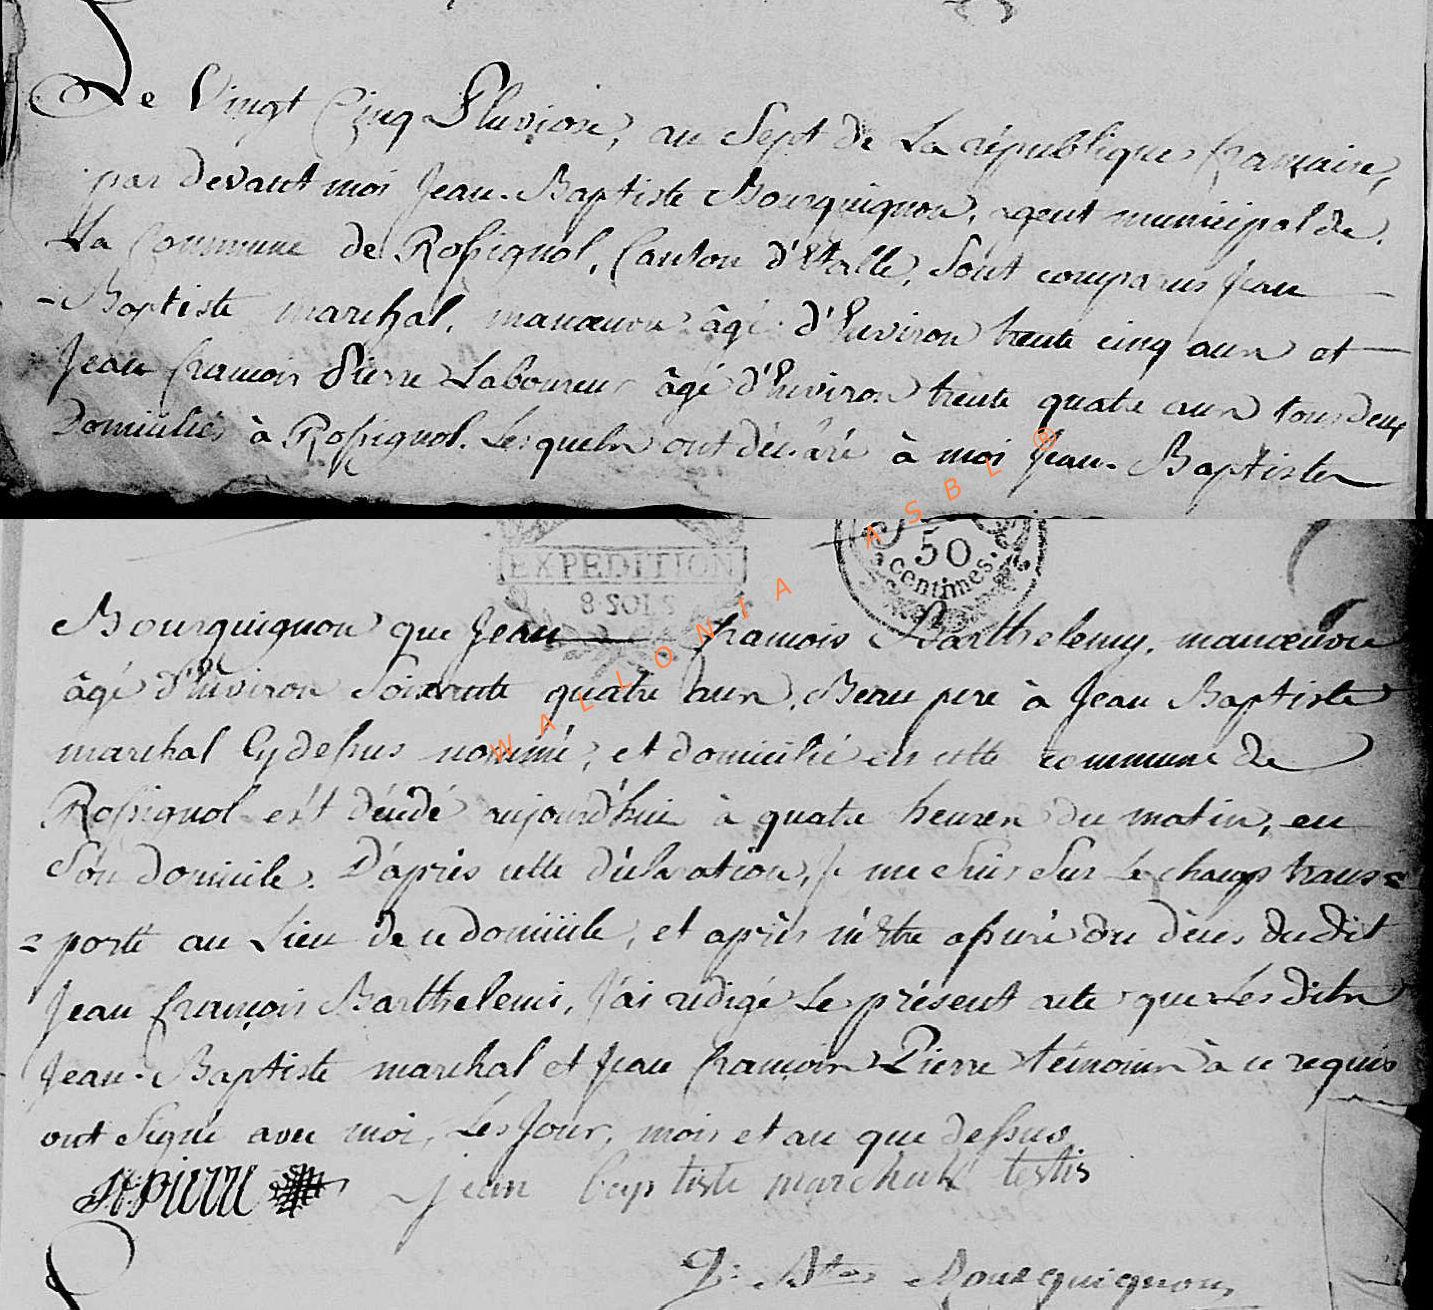 Le Vingt Cinq Pluviose, au Sept de La république francaise,
par devant moi Jean-Baptiste Bourguignon, agent municipal de
La Commune de Rossignol, Canton d'Etalle, Sont comparus Jean
-Baptiste marchal, manœuvre âgé d'Environ trente cinq ans et
Jean francois Pierre Laboureur âgé d'Environ trente quatre ans tous deux
Domiciliés à Rossignol. Lesquels ont déclaré à moi Jean-Baptiste
EXPEDITION
8 SOLS
50
centimes.
WALLONIA ASBL ®
Bourguignon que Jean francois Barthelemy, manœuvre
âgé d'Environ Soixante quatre ans, Beau pere à Jean Baptiste
marchal Cy dessus nommé, et domicilié en cette commune de
Rossignol est décédé aujourd'hui à quatre heures du matin, en
Son domicile. D'après cette déclaration, Je me Suis Sur Le champ trans=
=porté au Lieu de ce domicile, et après m'etre assuré du décès du dit
Jean françois Barthelemi, J'ai redigé Le présent acte que Les dits
Jean-Baptiste marchal et Jean françois Pierre témoins à ce requis
ont Signé avec moi, Les Jour, mois et an que dessus.
Pierre jean baptiste marchal testis
J: Bte Bourguignon